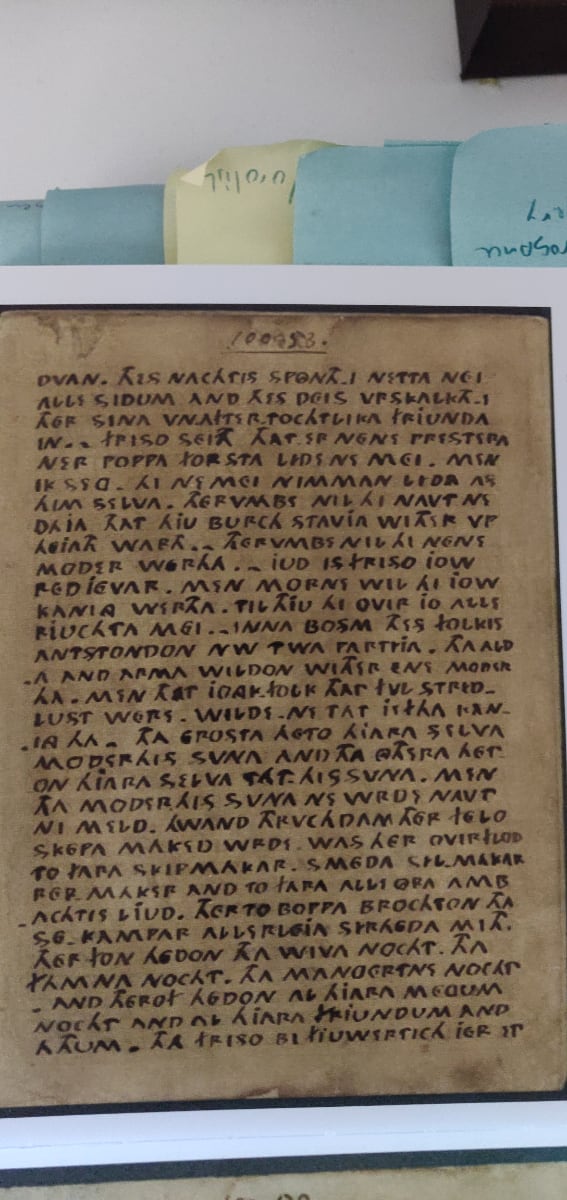 DVAN. THES NACHTIS SPONTH.I NETTA NEI
ALLE SIDUM AND THES DEIS VRSKALKTH.I
THER SINA VNAFTER.TOCHTLIKA FRIUNDA
IN.. FRISO SEITH THAT.ER NENE PRESTERA
NER POPPA FORSTA LIDE NE MEI. MEN
IK SEG. HI NE MEI NIMMAN LIDA AS
HIM SELVA. THERVMBE NIL HI NAVT NE
DAIA THAT HIU BURCH STAVIA WITHER VP
HEIATH WARTH.. THERVMBE NIL HI NENE
MODER WERHA.. IUD IS FRISO IOW
REDIEVAR. MEN MORNE WIL HI IOW
KANIG WERTHA. TIL THIU HI OVIR IO ALLE
RIUCHTA MEI.. INNA BOSM THES FOLKIS
ANTSTONDON NW TWA PARTIIA. THA ALD
-A AND ARMA WILDON WITHER ENE MODER
HA. MEN THAT IONK.FOLK THAT FVL STRED-
LUST WERE. WILDE.NE TAT IEFTHA KAN-
.IG HA. THA EROSTA HETO HIARA SELVA
MODERHIS SVNA AND THA OTHERA HET-
ON HIARA SELVA TAT.HIS SUNA. MEN
THA MODERHIS SVNA NE WRDE NAVT
NI MELD. HWAND THRVCHDAM THER FELO
SKEPA MAKED WRDE. WAS HER OVIRFLOD
TO FARA SKIPMAKAR. SMEDA SIL.MAKAR
REP.MAKER AND TO FARA ALLE ORA AMB
-ACHTIS LIUD. THERTO BOPPA BROCHTON THA
SE-KAMPAR ALLERLEIA SYRHEDA MITH.
THER FON HEDON THA WIVA NOCHT. THA
FAMNA NOCHT. THA MANGERTNE NOCHT
- AND THEROF HEDON AL HIARA MEGUM
NOCHT AND AL HIARA FRIUNDUM AND
ATHUM. THA FRISO BI FIUWERTICH IER ET